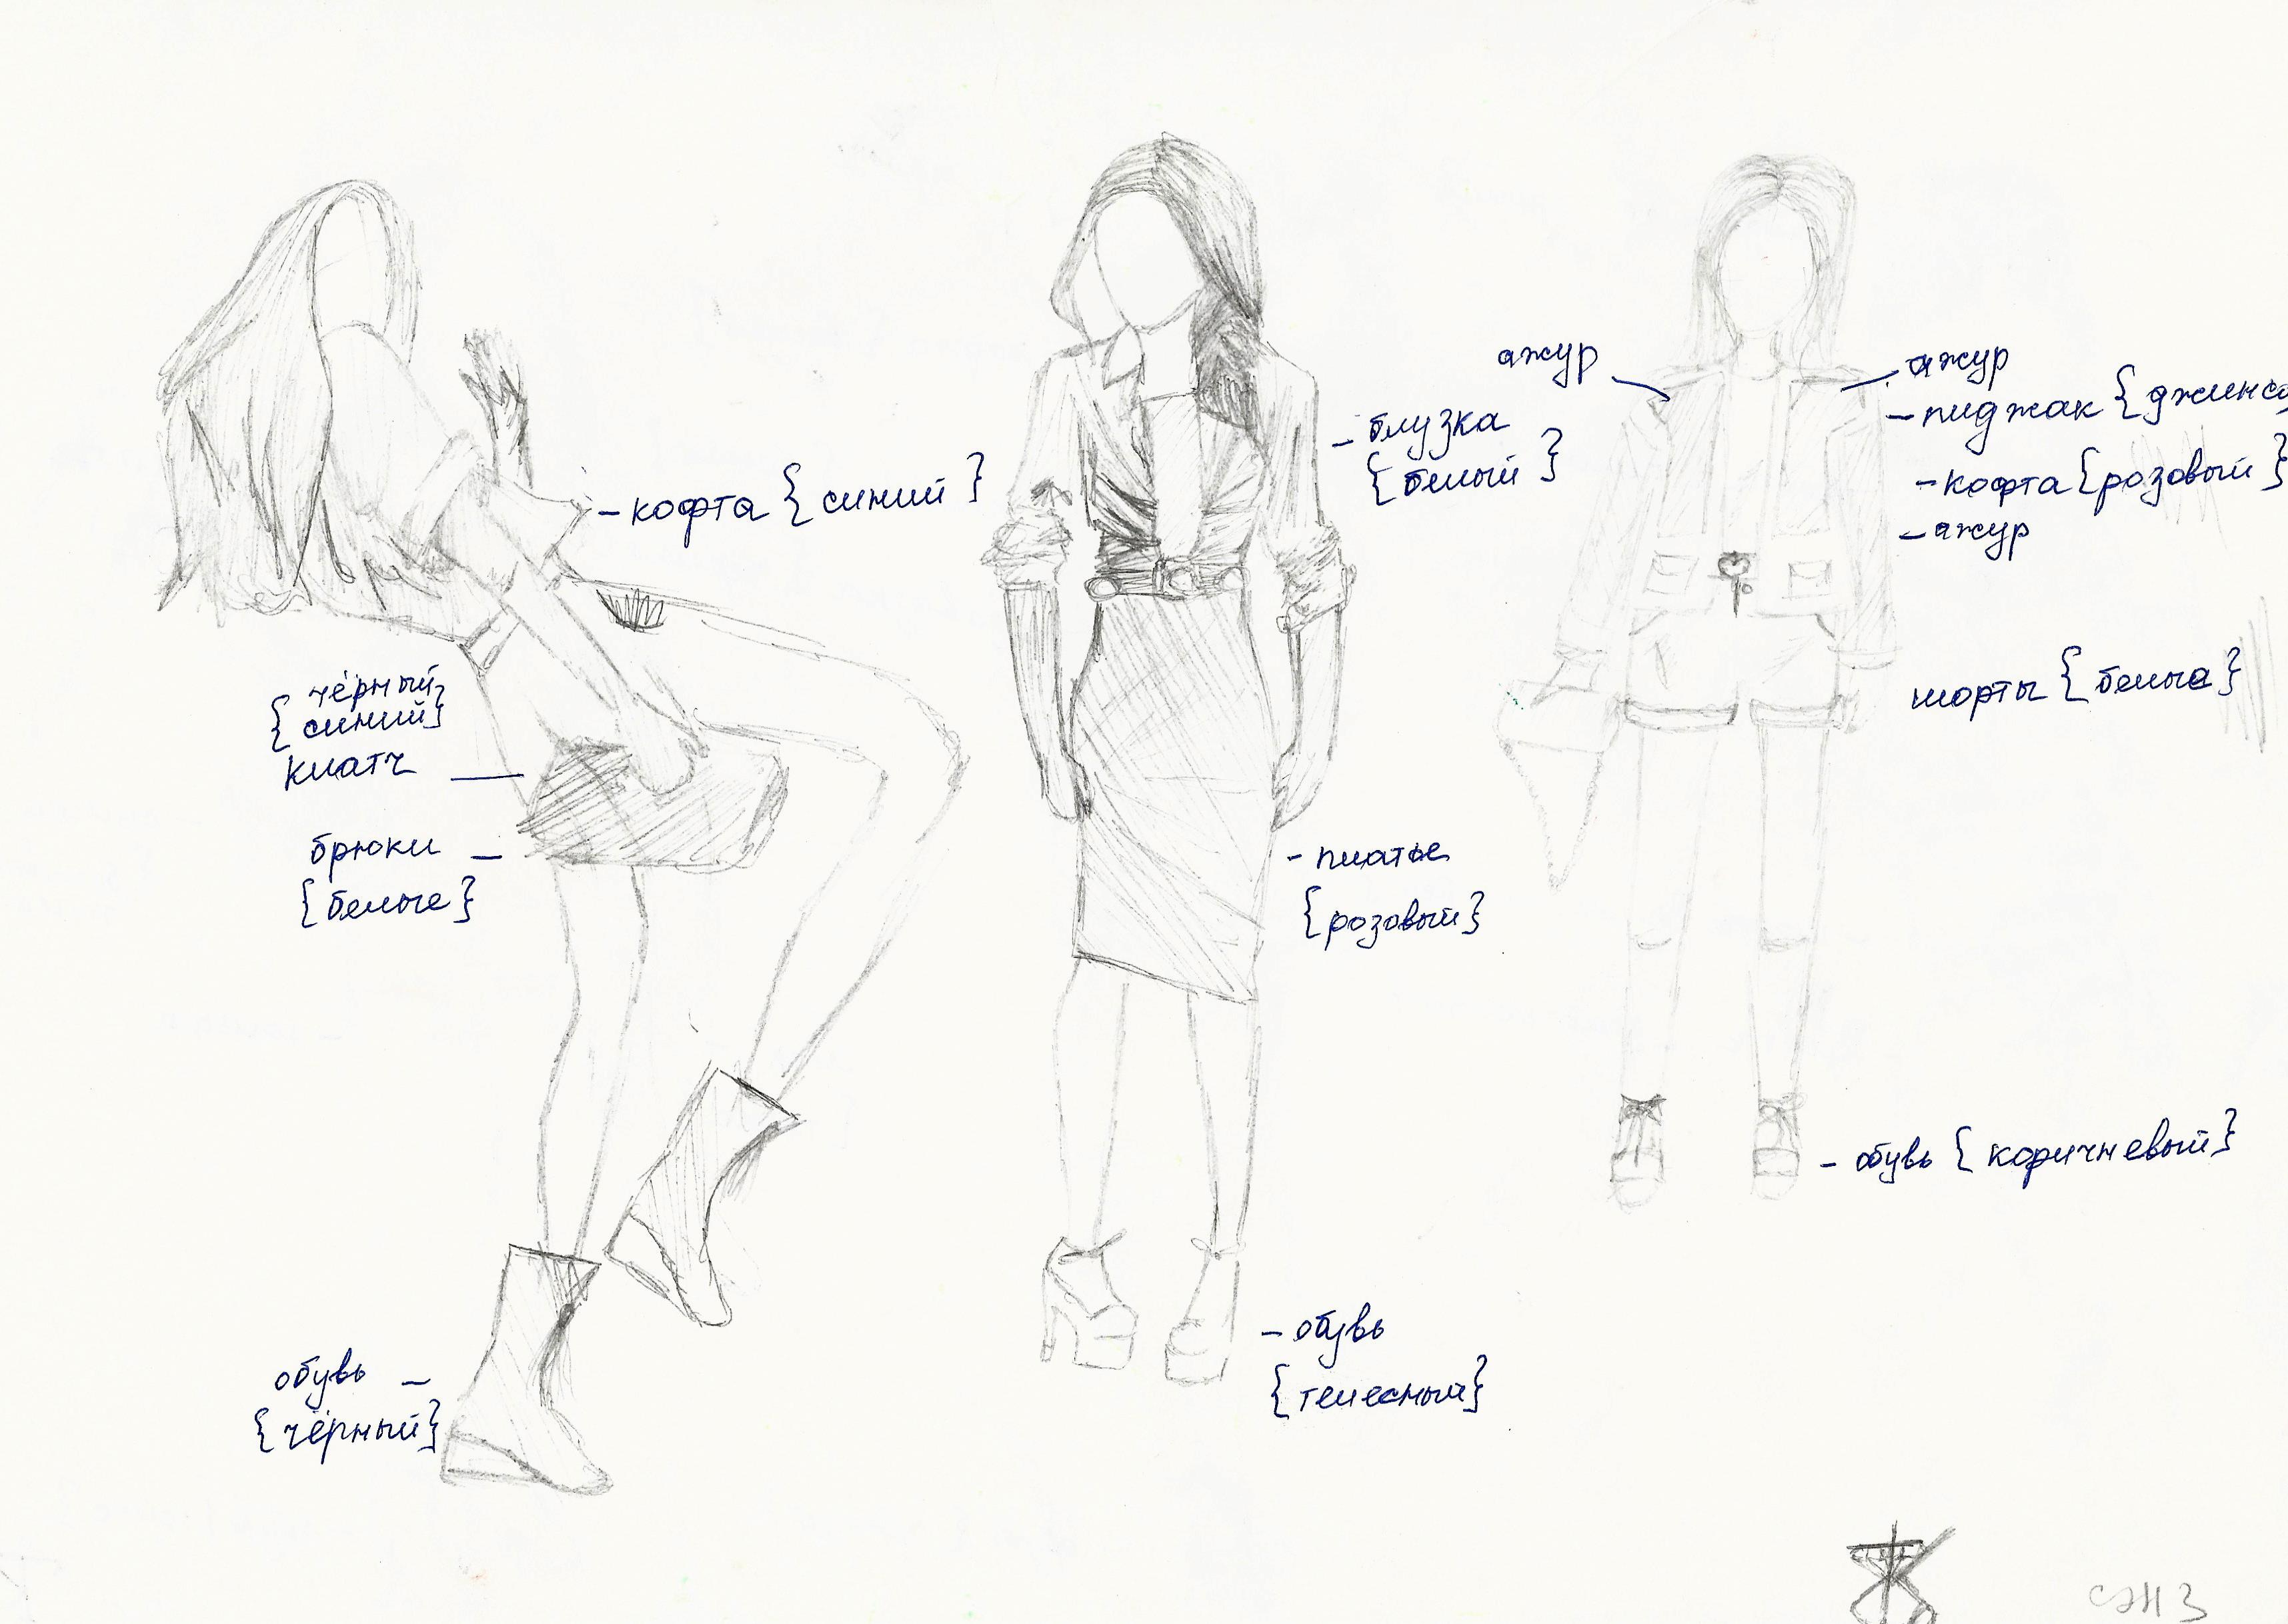 - кофта { синий }
{ чёрный
синий }
клатч —
брюки —
{ белые }
обувь —
{ чёрный }
- блузка
{ белый }
- платье
{ розовый }
- обувь
{ телесный }
ажур
ажур
- пиджак { джинсо
- кофта { розовый }
- ажур
шорты { белые }
- обувь { коричневый }